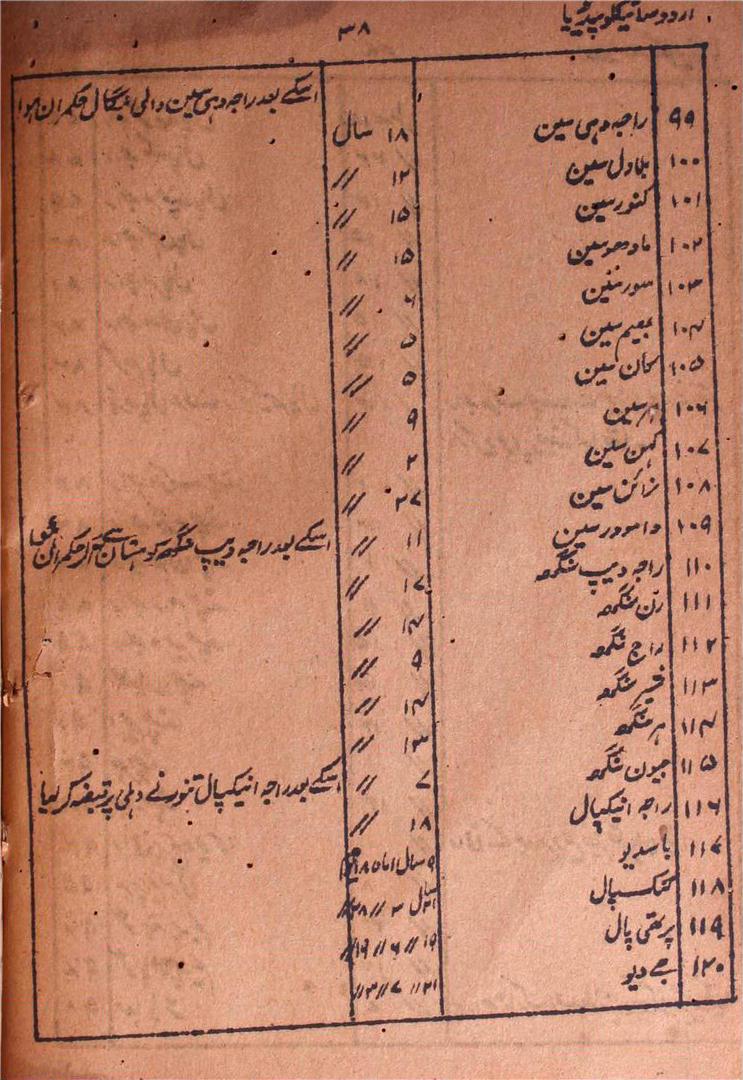 اردو سائیکلوپیڈیا
۳۸
۹۹ راجہ دہی سین ۱۸ سال اسکے بعد راجہ دہی سین والی بنگال حکمران ہوا
۱۰۰ بلادل سین ۱۲ //
۱۰۱ کنور سین ۱۵ //
۱۰۲ مادھو سین ۱۵ //
۱۰۳ سور سین ۶ //
۱۰۴ بھیم سین ۵ //
۱۰۵ کان سین ۵ //
۱۰۶ ہر سین ۹ //
۱۰۷ کہن سین ۲ //
۱۰۸ نرائن سین ۲۷ //
۱۰۹ دامودر سین ۱۱ // اسکے بعد راجہ دیپ سنگھ کوہستان سے آکر حکمران ہوا
۱۱۰ راجہ دیپ سنگھ ۱۷ //
۱۱۱ رن سنگھ ۱۴ //
۱۱۲ راج سنگھ ۹ //
۱۱۳ شیر سنگھ ۱۴ //
۱۱۴ ہر سنگھ ۱۳ //
۱۱۵ جیون سنگھ ۷ // اسکے بعد راجہ انیکپال تنور نے دہلی پر قبضہ کرلیا
۱۱۶ راجہ انیکپال ۱۸ //
۱۱۷ باسدیو ۹ سال ۱ ماہ ۱۸ یوم
۱۱۸ کنکپال ۲۱ سال ۳ // ۲۸ //
۱۱۹ پرتھی پال ۱۹ // ۶ // ۱۹ //
۱۲۰ جے دیو ۲۱ // ۷ // ۳ //